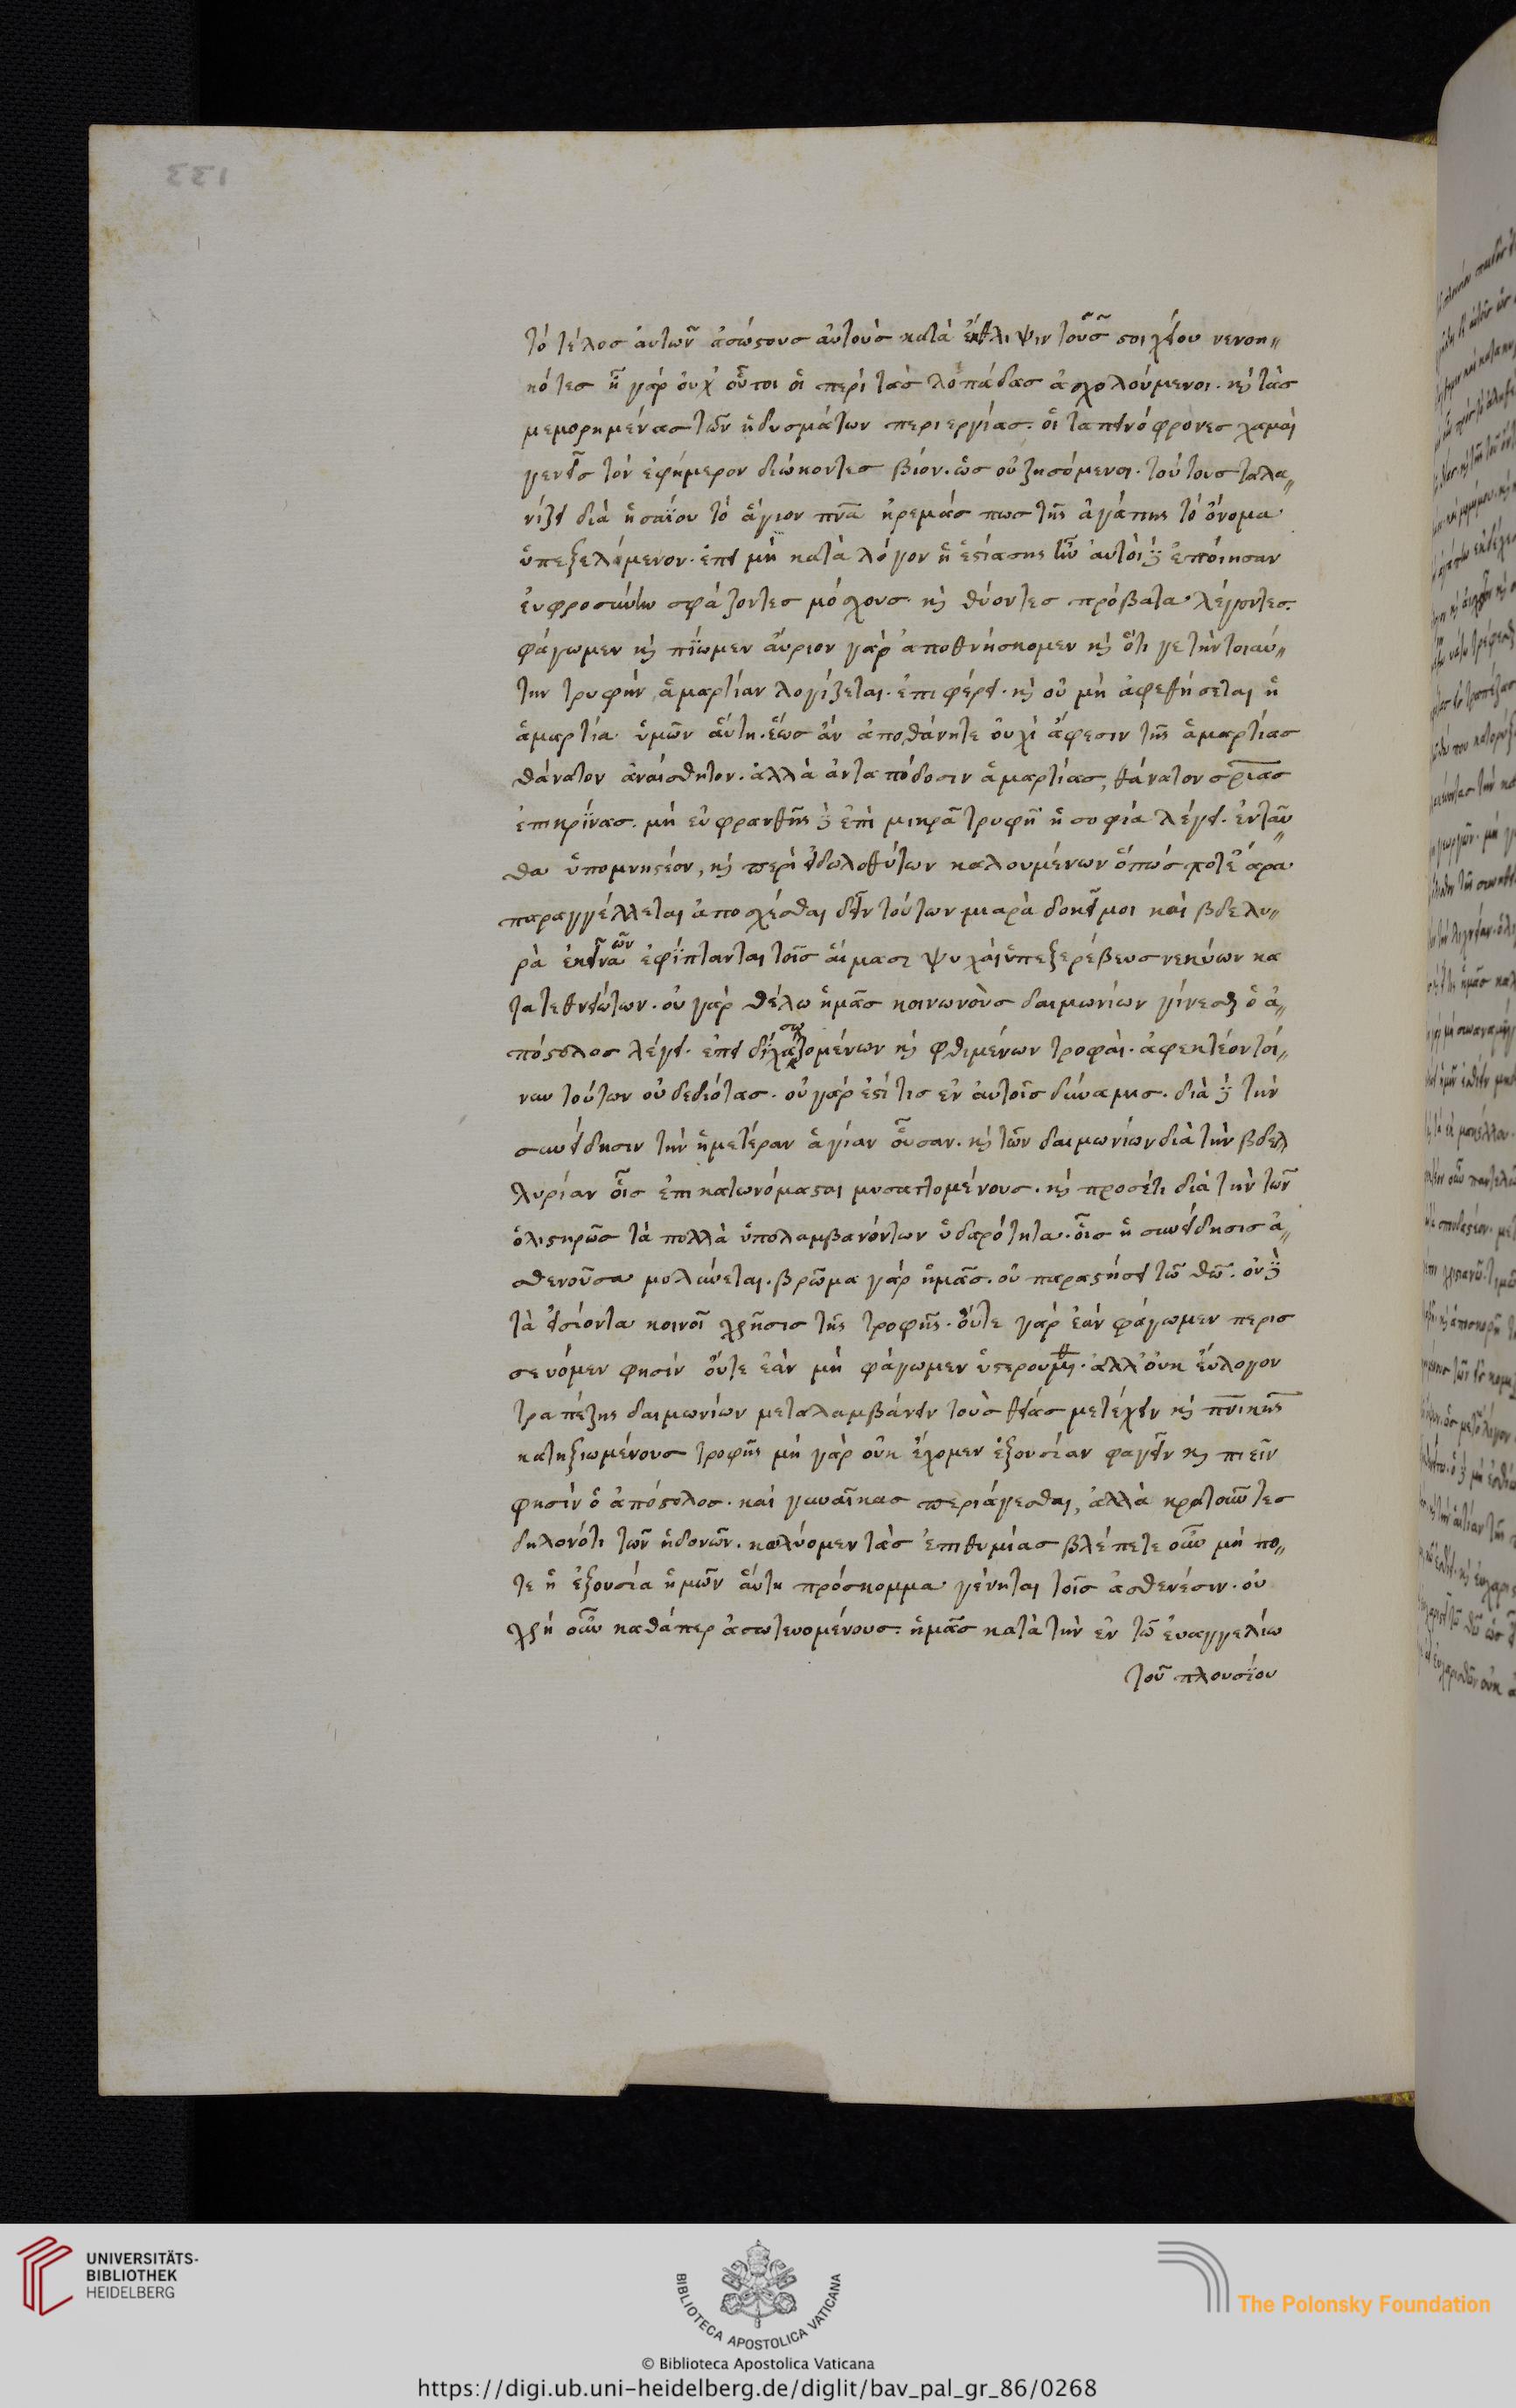 133
τὸ τέλος αὐτῶν ἀσώτους αὐτοὺς κατὰ ἔκθλιψιν τοῦ σ στοιχείου νενοη„
κότες ἢ γὰρ οὐχ οὗτοι οἱ περὶ τὰς λοπάδας ἀσχολούμενοι. κὶ τὰς
μεμορημένας τῶν ἡδυσμάτων περιεργίας. οἱ ταπεινόφρονες χαμαὶ
γενεῖς τὸν ἐφήμερον διώκοντες βίον. ὡς οὐ ζησόμενοι. τούτους ταλα„
νίζει διὰ ἡσαΐου τὸ ἅγιον πνα ἠρεμάς πως τῆς ἀγάπης τὸ ὄνομα
ὑπεξελόμενον. ἐπεὶ μὴ κατὰ λόγον ἡ ἑστίασης ἦν αὐτοὶ δὲ ἐποίησαν
εὐφροσύνην σφάζοντες μόσχους κὶ θύοντες πρόβατα λέγοντες.
φάγωμεν κὶ πίωμεν αὔριον γὰρ ἀποθνήσκομεν κὶ ὅτι γε τὴν τοιαύ„
την τρυφὴν ἁμαρτίαν λογίζεται. ἐπιφέρει. κὶ οὐ μὴ ἀφεθήσεται ἡ
ἁμαρτία ὑμῶν αὕτη. ἕως ἂν ἀποθάνητε οὐχὶ ἄφεσιν τῆς ἁμαρτίας
θάνατον ἀναίσθητον. ἀλλὰ ἀνταπόδοσιν ἁμαρτίας, θάνατον σρίας
ἐπικρίνας. μὴ εὐφρανθῆς δὲ ἐπὶ μικρᾶ τρυφῆ ἡ σοφία λέγει. ἐνταῦ„
θα ὑπομνηστέον, κὶ περὶ εἰδωλοθύτων καλουμένων ὅπώς ποτε ἄρα
παραγγέλλεται ἀποσχέσθαι δεῖν τούτων μιαρὰ δοκεῖ μοι καὶ βδελυ„
ρὰ ἐκεῖνα ὧν ἐφίπτανται τοῖς αἵμασι ψυχαὶ ὑπεξερέβευς νεκύων κα
τατεθνειώτων. οὐ γὰρ θέλω ἡμᾶς κοινωνοὺς δαιμωνίων γίνεσθ ὁ ἀ„
πόστολος λέγει. ἐπεὶ δίχα σωζομένων κὶ φθιμένων τροφαὶ. ἀφεκτέον τοί„
νυν τούτων οὐ δεδιότας. οὐ γάρ ἐστί τις ἐν αὐτοῖς δύναμις. διὰ δὲ τὴν
συνείδησιν τὴν ἡμετέραν ἁγίαν οὖσαν. κὶ τῶν δαιμωνίων διὰ τὴν βδελ
λυρίαν οἷς ἐπικατωνόμασται μυσαττομένους. κὶ προσέτι διὰ τὴν τῶν
ὀλισθηρῶς τὰ πολλὰ ὑπολαμβανόντων ὑδαρότητα. οἷς ἡ συνείδησις ἀ„
σθενοῦσα μολύνεται. βρῶμα γὰρ ἡμᾶς. οὐ παραστήσει τῶ θῶ. οὐδὲ
τὰ εἰσίοντα κοινοῖ χρῆσις τῆς τροφῆς. οὔτε γὰρ ἐὰν φάγωμεν περισ
σευόμεν φησίν οὔτε ἐὰν μὴ φάγωμεν ὑστερούμεθα. ἀλλ' οὐκ εὔλογον
τραπέζης δαιμωνίων μεταλαμβάνειν τοὺς θείας μετέχειν κὶ πνικῆς
κατηξιωμένους τροφῆς μὴ γὰρ οὐκ ἔχομεν ἐξουσίαν φαγεῖν κὶ πιεῖν
φησὶν ὁ ἀπόστολος. καὶ γυναῖκας περιάγεσθαι, ἀλλὰ κρατοῦντες
δηλονότι τῶν ἡδονῶν. κωλύομεν τὰς ἐπιθυμίας βλέπετε οὖν μή πο„
τε ἡ ἐξουσία ἡμῶν αὕτη πρόσκομμα γένηται τοῖς ἀσθενέσιν. οὐ
χρὴ οὖν καθάπερ ἀσωτευομένους. ἡμᾶς κατὰ τὴν ἐν τῶ εὐαγγελίω
τοῦ πλουσίου
UNIVERSITÄTS-
BIBLIOTHEK
HEIDELBERG
BIBLIOTECA APOSTOLICA VATICANA
The Polonsky Foundation
© Biblioteca Apostolica Vaticana
https://digi.ub.uni-heidelberg.de/diglit/bav_pal_gr_86/0268